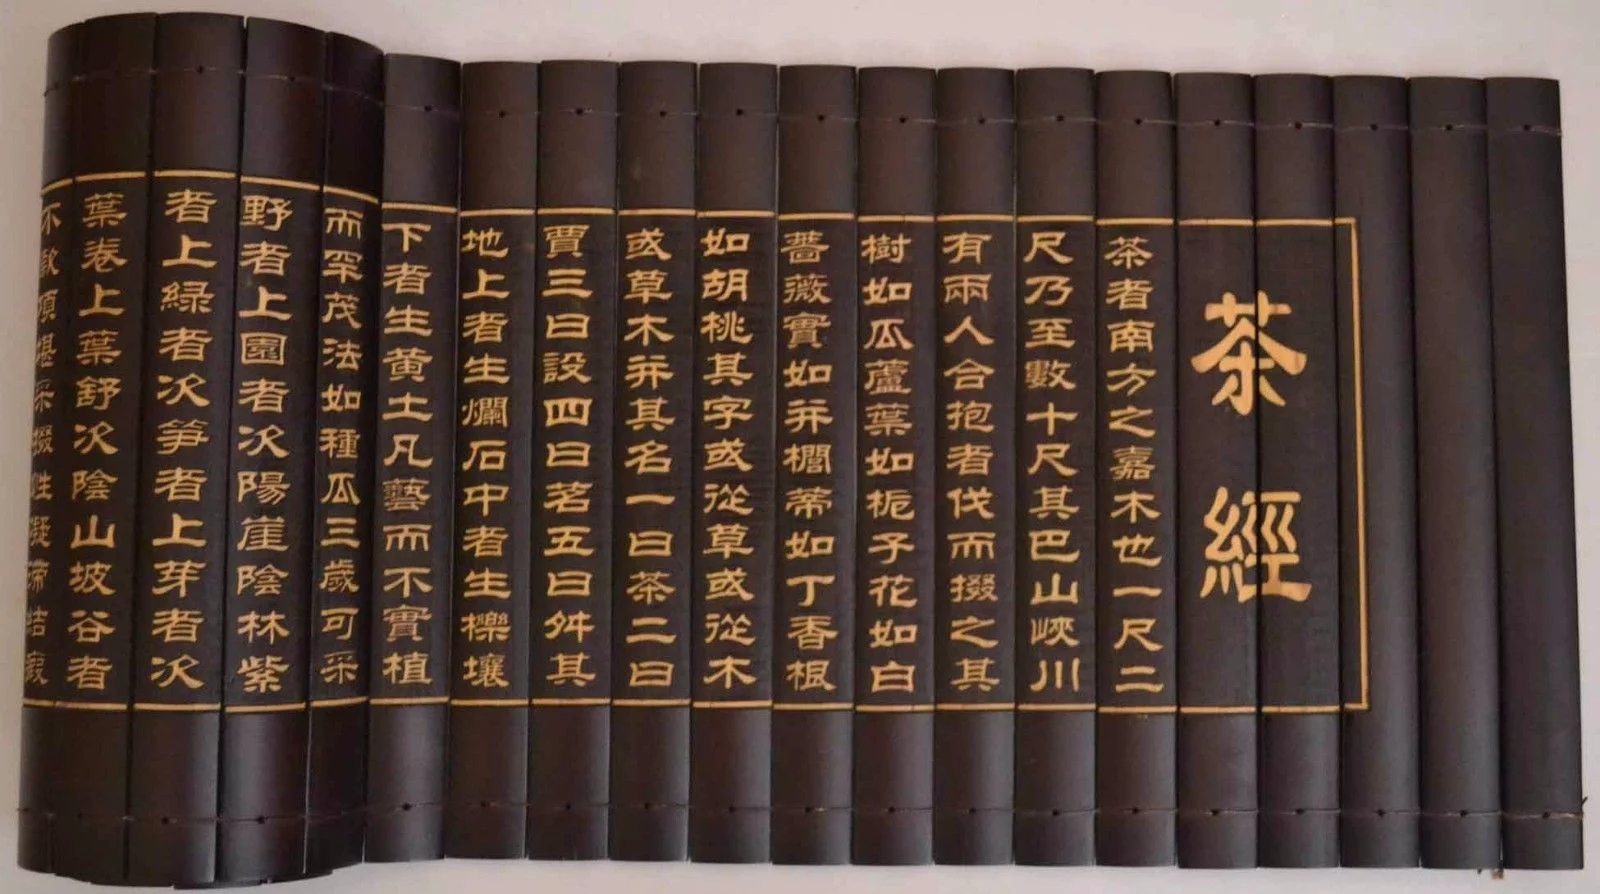 茶經
茶者南方之嘉木也一尺二
尺乃至數十尺其巴山峽川
有兩人合抱者伐而掇之其
樹如瓜蘆葉如梔子花如白
薔薇實如并櫚蒂如丁香根
如胡桃其字或從草或從木
或草木并其名一曰茶二曰
賈三曰設四曰茗五曰舛其
地上者生爛石中者生櫟壤
下者生黄土凡藝而不實植
而罕茂法如種瓜三歲可采
野者上園者次陽崖陰林紫
者上緑者次笋者上芽者次
葉卷上葉舒次陰山坡谷者
不項堪采掇性凝滯結瘕